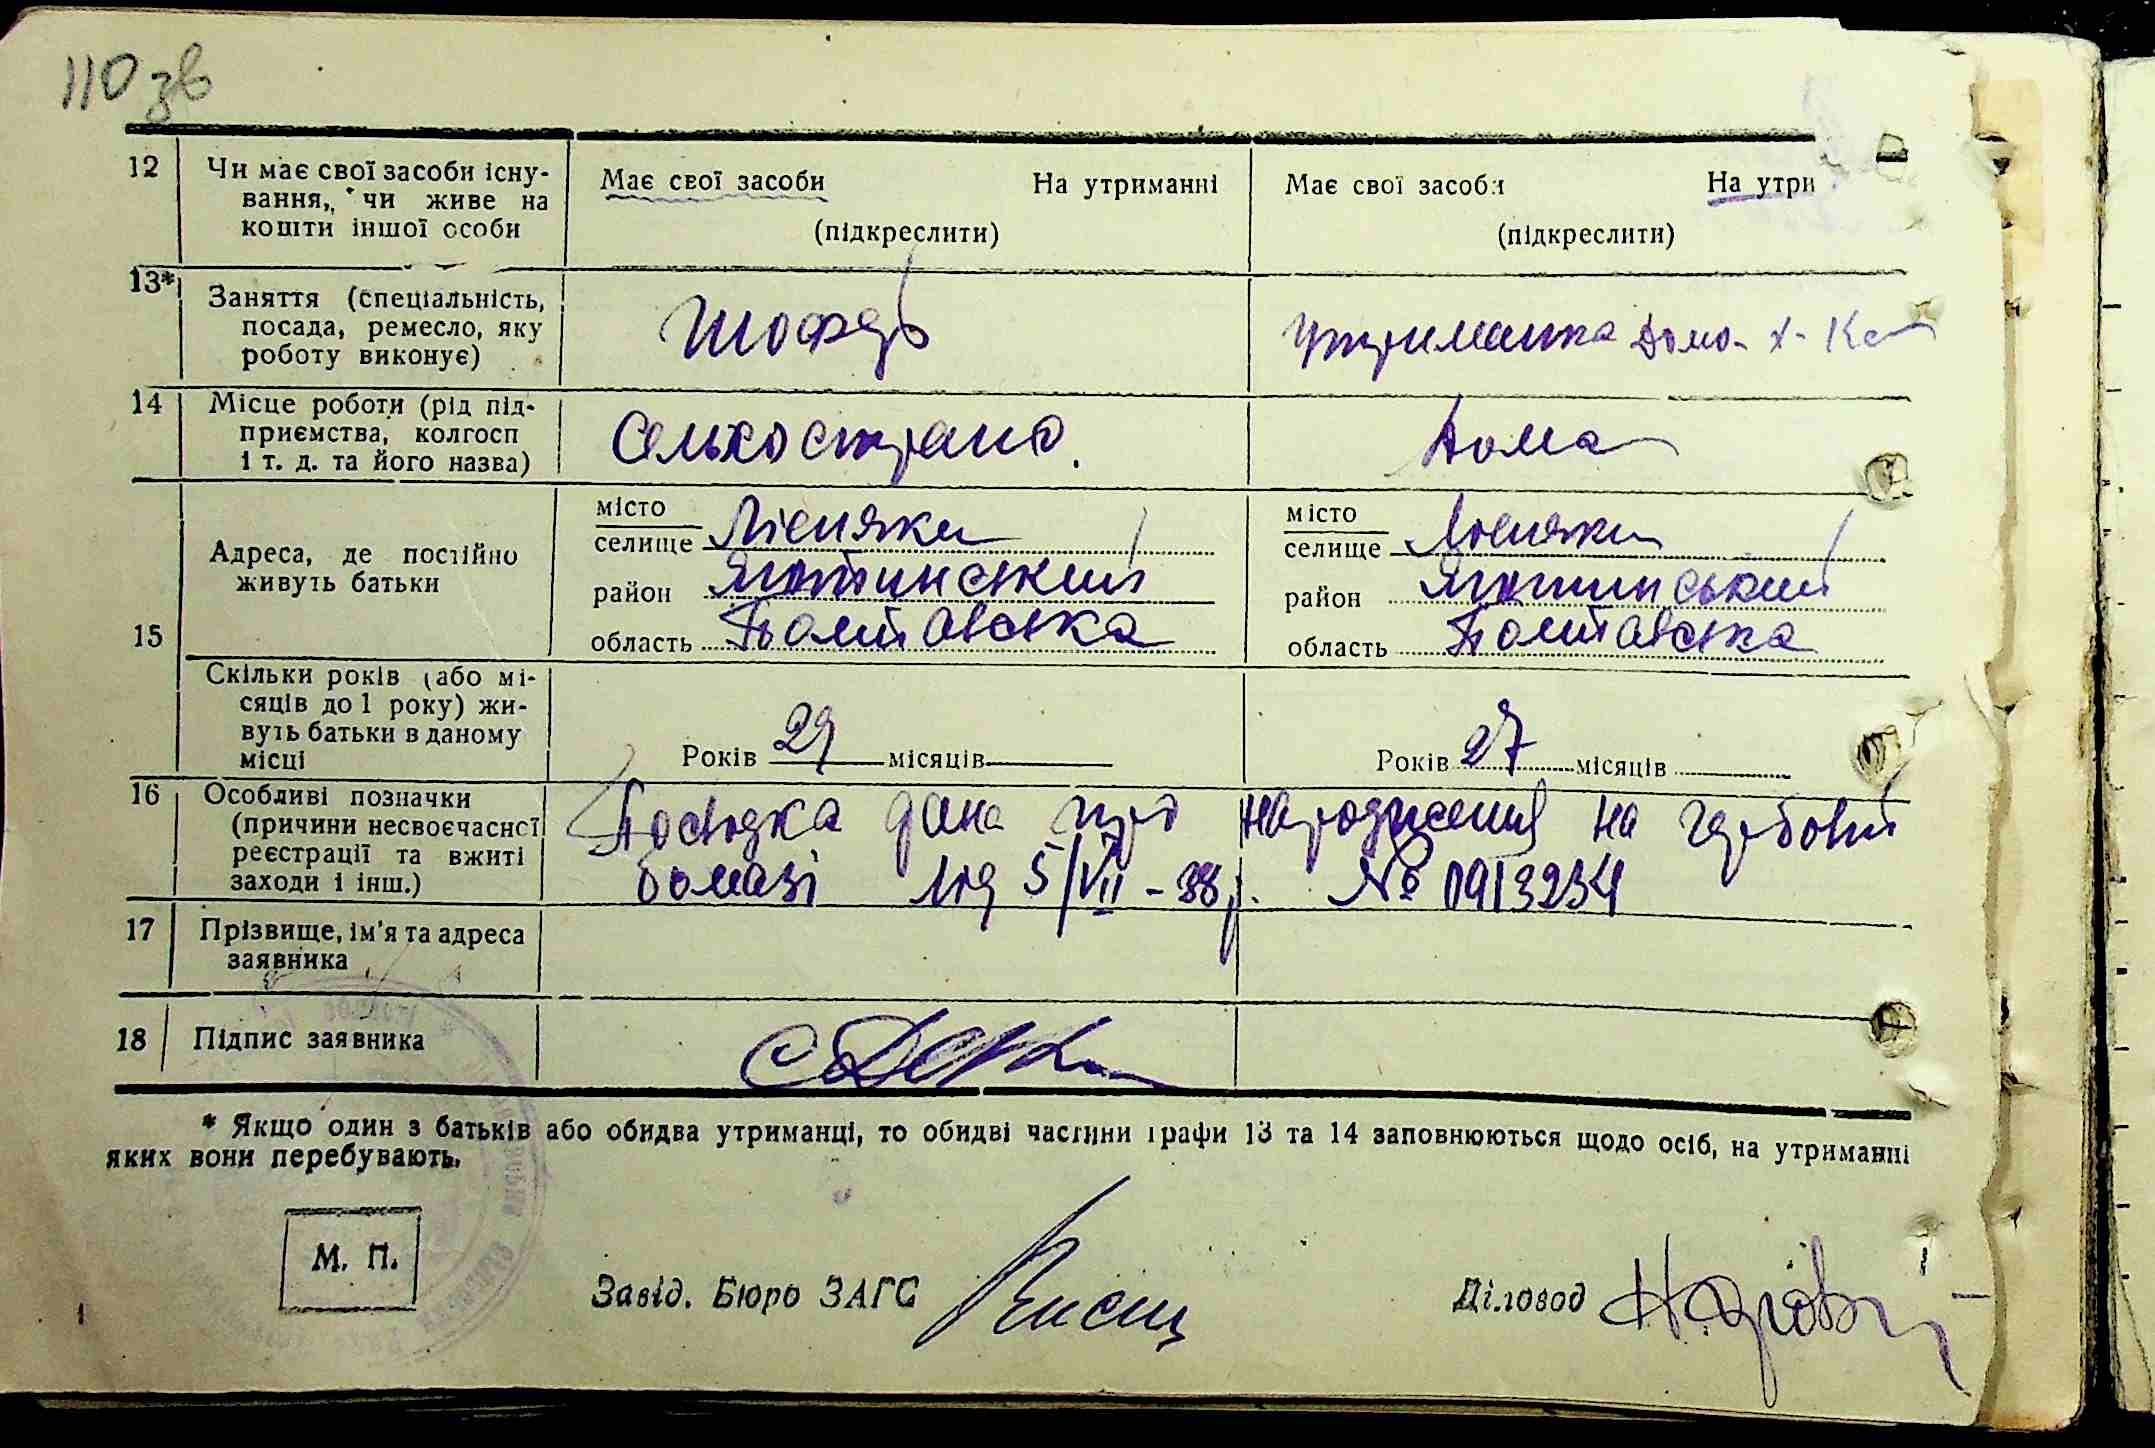 110 зв
12 Чи має свої засоби існу- Має свої засоби На утриманні Має свої засоби На утри
вання, чи живе на
кошти іншої особи (підкреслити) (підкреслити)
13* Заняття (спеціальність, Шофер утриманка домо-х-ка
посада, ремесло, яку
роботу виконує)
14 Місце роботи (рід під- дома
приємства, колгосп
і т. д. та його назва)
15 Адреса, де постійно
живуть батьки
місто місто
селище Лісняки селище Лісняки
район Яготинський район Яготинський
область Полтавська область Полтавська
Скільки років (або мі-
сяців до 1 року) жи-
вуть батьки в даному
місці
Років 29 місяців Років 27 місяців
16 Особливі позначки Посвідка дана про народження на гербовій
(причини несвоєчасної
реєстрації та вжиті бомазі від 5/VII-38р. № 0913234
заходи і інш.)
17 Прізвище, ім'я та адреса
заявника
18 Підпис заявника
* Якщо один з батьків або обидва утриманці, то обидві частини графи 13 та 14 заповнюються щодо осіб, на утриманні
яких вони перебувають.
М. П.
Завід. Бюро ЗАГС Діловод